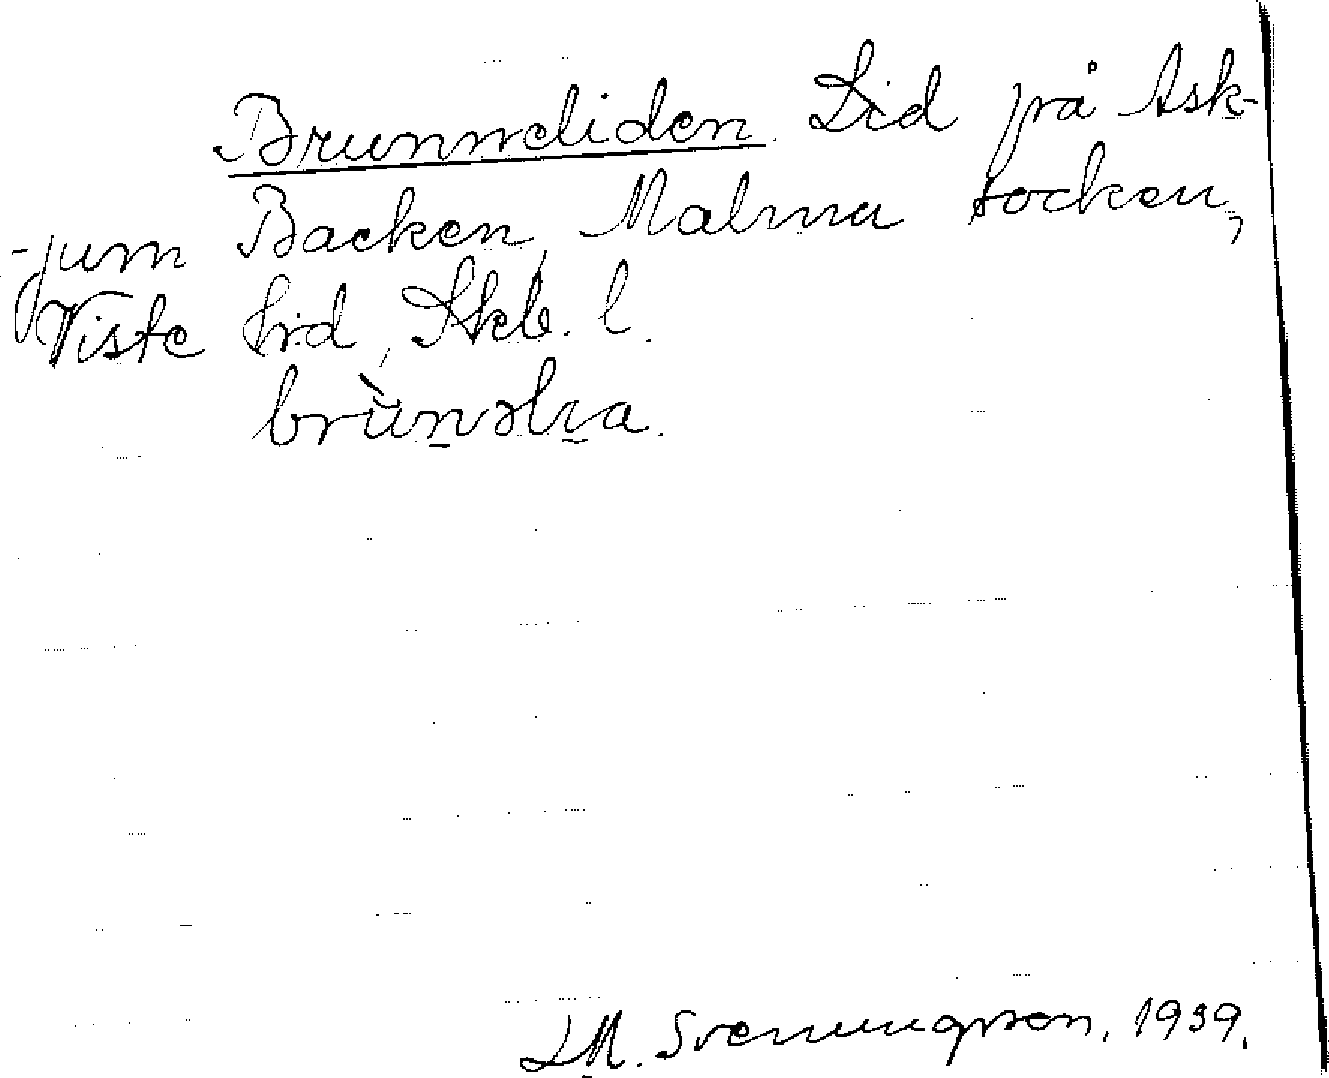 Brunneliden. Lid på Ask-
-jum Backen, Malma socken,
Viste hd, Skb. l.
brùnəlia.
L M. Svenungsson. 1939.